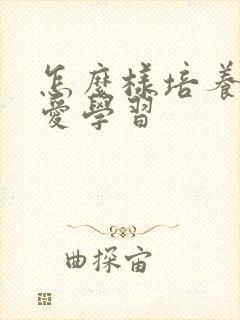 怎麼樣培養
愛學習
曲探宙